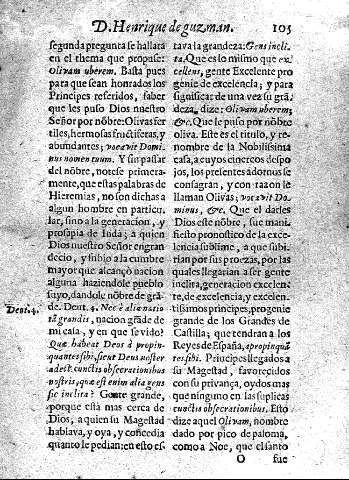 D. Henrique de guzman. 105
segunda pregunta se hallara
en el thema que propuse:
Olivam uberem. Basta pues
para que sean honrados los
Principes referidos, saber
que les puso Dios nuestro
Señor por nõbre: Olivas fer
tiles, hermosas fructiferas, y
abundantes; vocavit Domi-
nus nomen tuum. Y sin passar
del nõbre, notese primera-
mente, que estas palabras de
Hieremias, no son dichas a
algun hombre en particu-
lar, sino a la generacion, y
prosapia de Iuda; a quien
Dios nuestro Señor engran
decio, y subio a la cumbre
mayor que alcançò nacion
alguna haziendole pueblo
suyo, dandole nõbre de grã-
Deut. 4.
de. Deut. 4. Nec è alia natio
tã grandis, nacion grãde de
mi casa, y en que se vido?
Quæ habeat Deos à propin-
quantes sibi, sicut Deus noster
adest cunctis obsecrationibus
nostris, quæ est enim alia gens
sic inclita? Gente grande,
porque està mas cerca de
Dios, a quien su Magestad
hablava, y oya, y concedia
quanto le pedian: en esto es-
tava la grandeza: Gens incli-
ta. Que es lo mismo que ex
cellens, gente Excelente pro
genie de excelencia; y para
significar de una vez su grã
deza, dize: Olivam uberem;
&c. Que le puso por nõbre
oliva. Este es el titulo, y re-
nombre de la Nobilissima
casa, a cuyos cinereos despo
jos, los presentes adornos se
consagran, y con razon le
llaman Olivas; vocavit Do-
minus, &c. Que el darles
Dios este nõbre, sue mani-
fiesto pronostico de la exce-
lencia sublime, a que subi-
rian por sus proezas, por las
quales llegarian a ser gente
inclita, generacion excelen
te, de excelencia, y excelen-
tissimos principes, progenie
grande de los Grandes de
Castilla; que tendran a los
Reyes de España, apropinquã
tes sibi. Principes llegados a
su Magestad, favorecidos
con su privança, oydos mas
que ninguno en las suplicas
cunctis obsecrationibus. Esto
dize aquel Olivam, nombre
dado por pico de paloma,
como a Noe, que el santo
O fue